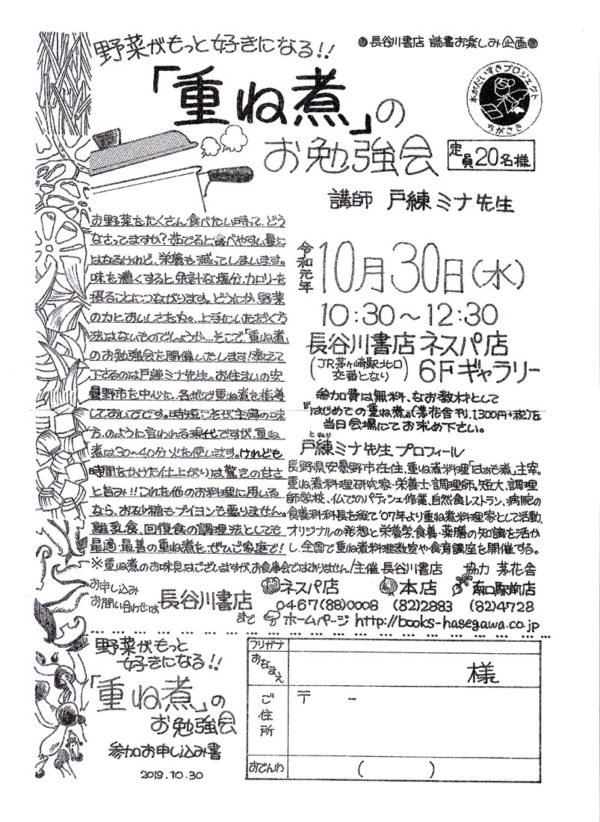 野菜がもっと好きになる!!
●長谷川書店 読書お楽しみ企画●
本がだいすきプロジェクト
ちがさき
「重ね煮」の
お勉強会
定員20名様
講師 戸練ミナ先生
お野菜をたくさん食べたい時って、どう
なさってますか?茹でると食べやすい量に
はなるけれど、栄養も減ってしまいます。
味を濃くすると余計な塩分、カロリーを
摂ることにつながります。どうにか野菜
の力とおいしさを丸々、上手にいただく方
法はないものでしょうか…そこで「重ね煮」
のお勉強会を開催いたします!教えて
下さるのは戸練ミナ先生。お住まいの安
曇野市を中心に、各地で重ね煮を指導
しておいでです。時短こそが主婦の味
方、のように言われる現代ですが、重ね
煮は30〜40分火を使います。けれども
時間をかけた仕上がりは驚きの甘さ
と旨み!!これを他のお料理に用いる
なら、お砂糖もブイヨンも要りません。
離乳食、回復食の調理法としても
最適・最善の重ね煮を、ぜひご家庭で!
令和元年
10月30日(水)
10:30〜12:30
長谷川書店 ネスパ店
(JR茅ヶ崎駅北口
交番となり)
6Fギャラリー
参加費は無料、なお教材として
『はじめての重ね煮』(茅花舎刊、1,300円+税)を
当日会場にてお求め下さい。
とねり
戸練ミナ先生 プロフィール
長野県安曇野市在住、重ね煮料理「はぁも煮」主宰。
重ね煮料理研究家・栄養士・調理師。短大、調理
師学校、仏でのパティシェ修業、自然食レストラン、病院の
食養科科長を経て'07年より重ね煮料理家として活動。
オリジナルの発想と栄養学、食養・薬膳の知識を活か
し、全国で重ね煮料理教室や食育講座を開催する。
※重ね煮のお味見はございますが、お食事会ではありません/主催 長谷川書店 協力 茅花舎
お申し込み
お問い合わせは
長谷川書店
まで
ネスパ店
0467(88)0008
本店
(82)2883
南口駅前店
(82)4728
ホームページ http://books-hasegawa.co.jp
野菜がもっと
好きになる!!
「重ね煮」の
お勉強会
参加お申し込み書
2019.10.30
フリガナ
おなまえ
様
ご住所
〒 −
おでんわ
( )